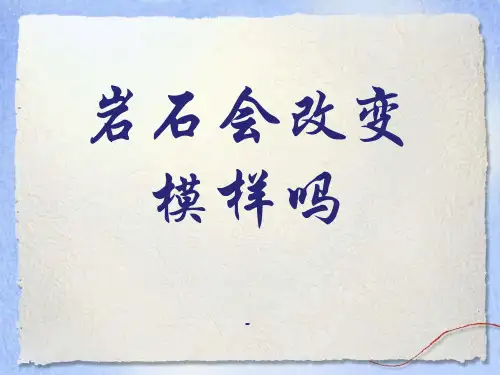 岩石会改变
模样吗